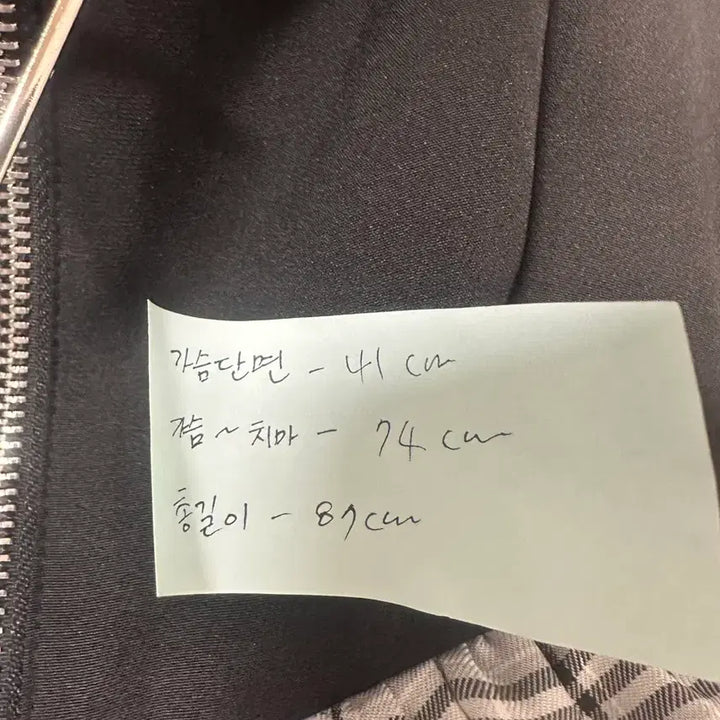 가슴단면 - 41 cm
가슴 ~ 치마 - 74 cm
총길이 - 87 cm